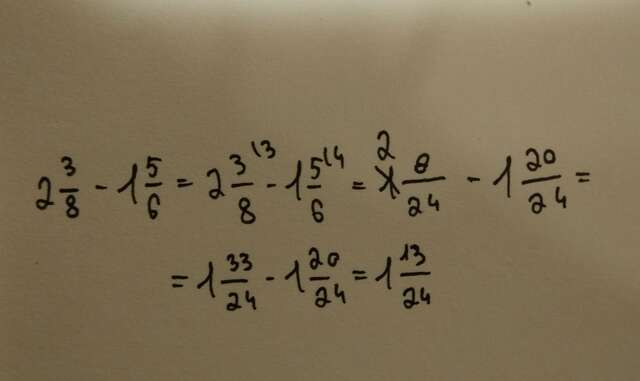 2 3/8 - 1 5/6 = 2 3/8 ⁽³ - 1 5/6 ⁽⁴ = 2 8/24 - 1 20/24 =
= 1 33/24 - 1 20/24 = 1 13/24